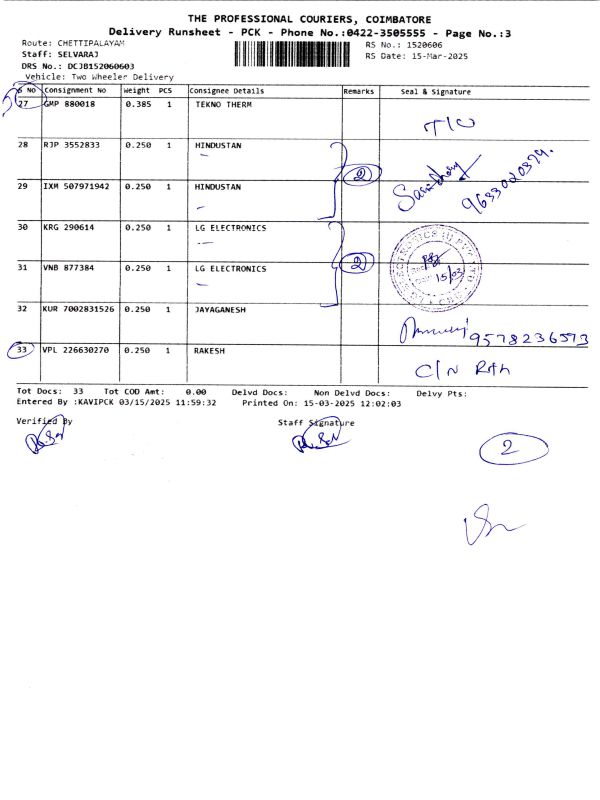 THE PROFESSIONAL COURIERS, COIMBATORE
Delivery Runsheet - PCK - Phone No.:0422-3505555 - Page No.:3
Route: CHETTIPALAYAM
RS No.: 1520606
Staff: SELVARAJ
RS Date: 15-Mar-2025
DRS No.: DCJB152060603
Vehicle: Two Wheeler Delivery
S No Consignment No Weight PCS Consignee Details Remarks Seal & Signature
27 GMP 880018 0.385 1 TEKNO THERM
T/C
28 RJP 3552833 0.250 1 HINDUSTAN
2
9633020379.
29 IXM 507971942 0.250 1 HINDUSTAN
30 KRG 290614 0.250 1 LG ELECTRONICS
2
15/03
31 VNB 877384 0.250 1 LG ELECTRONICS
32 KUR 7002831526 0.250 1 JAYAGANESH
9578236573
33 VPL 226630270 0.250 1 RAKESH
C/N Rth
Tot Docs: 33 Tot COD Amt: 0.00 Delvd Docs: Non Delvd Docs: Delvy Pts:
Entered By :KAVIPCK 03/15/2025 11:59:32 Printed On: 15-03-2025 12:02:03
Verified By Staff Signature
2